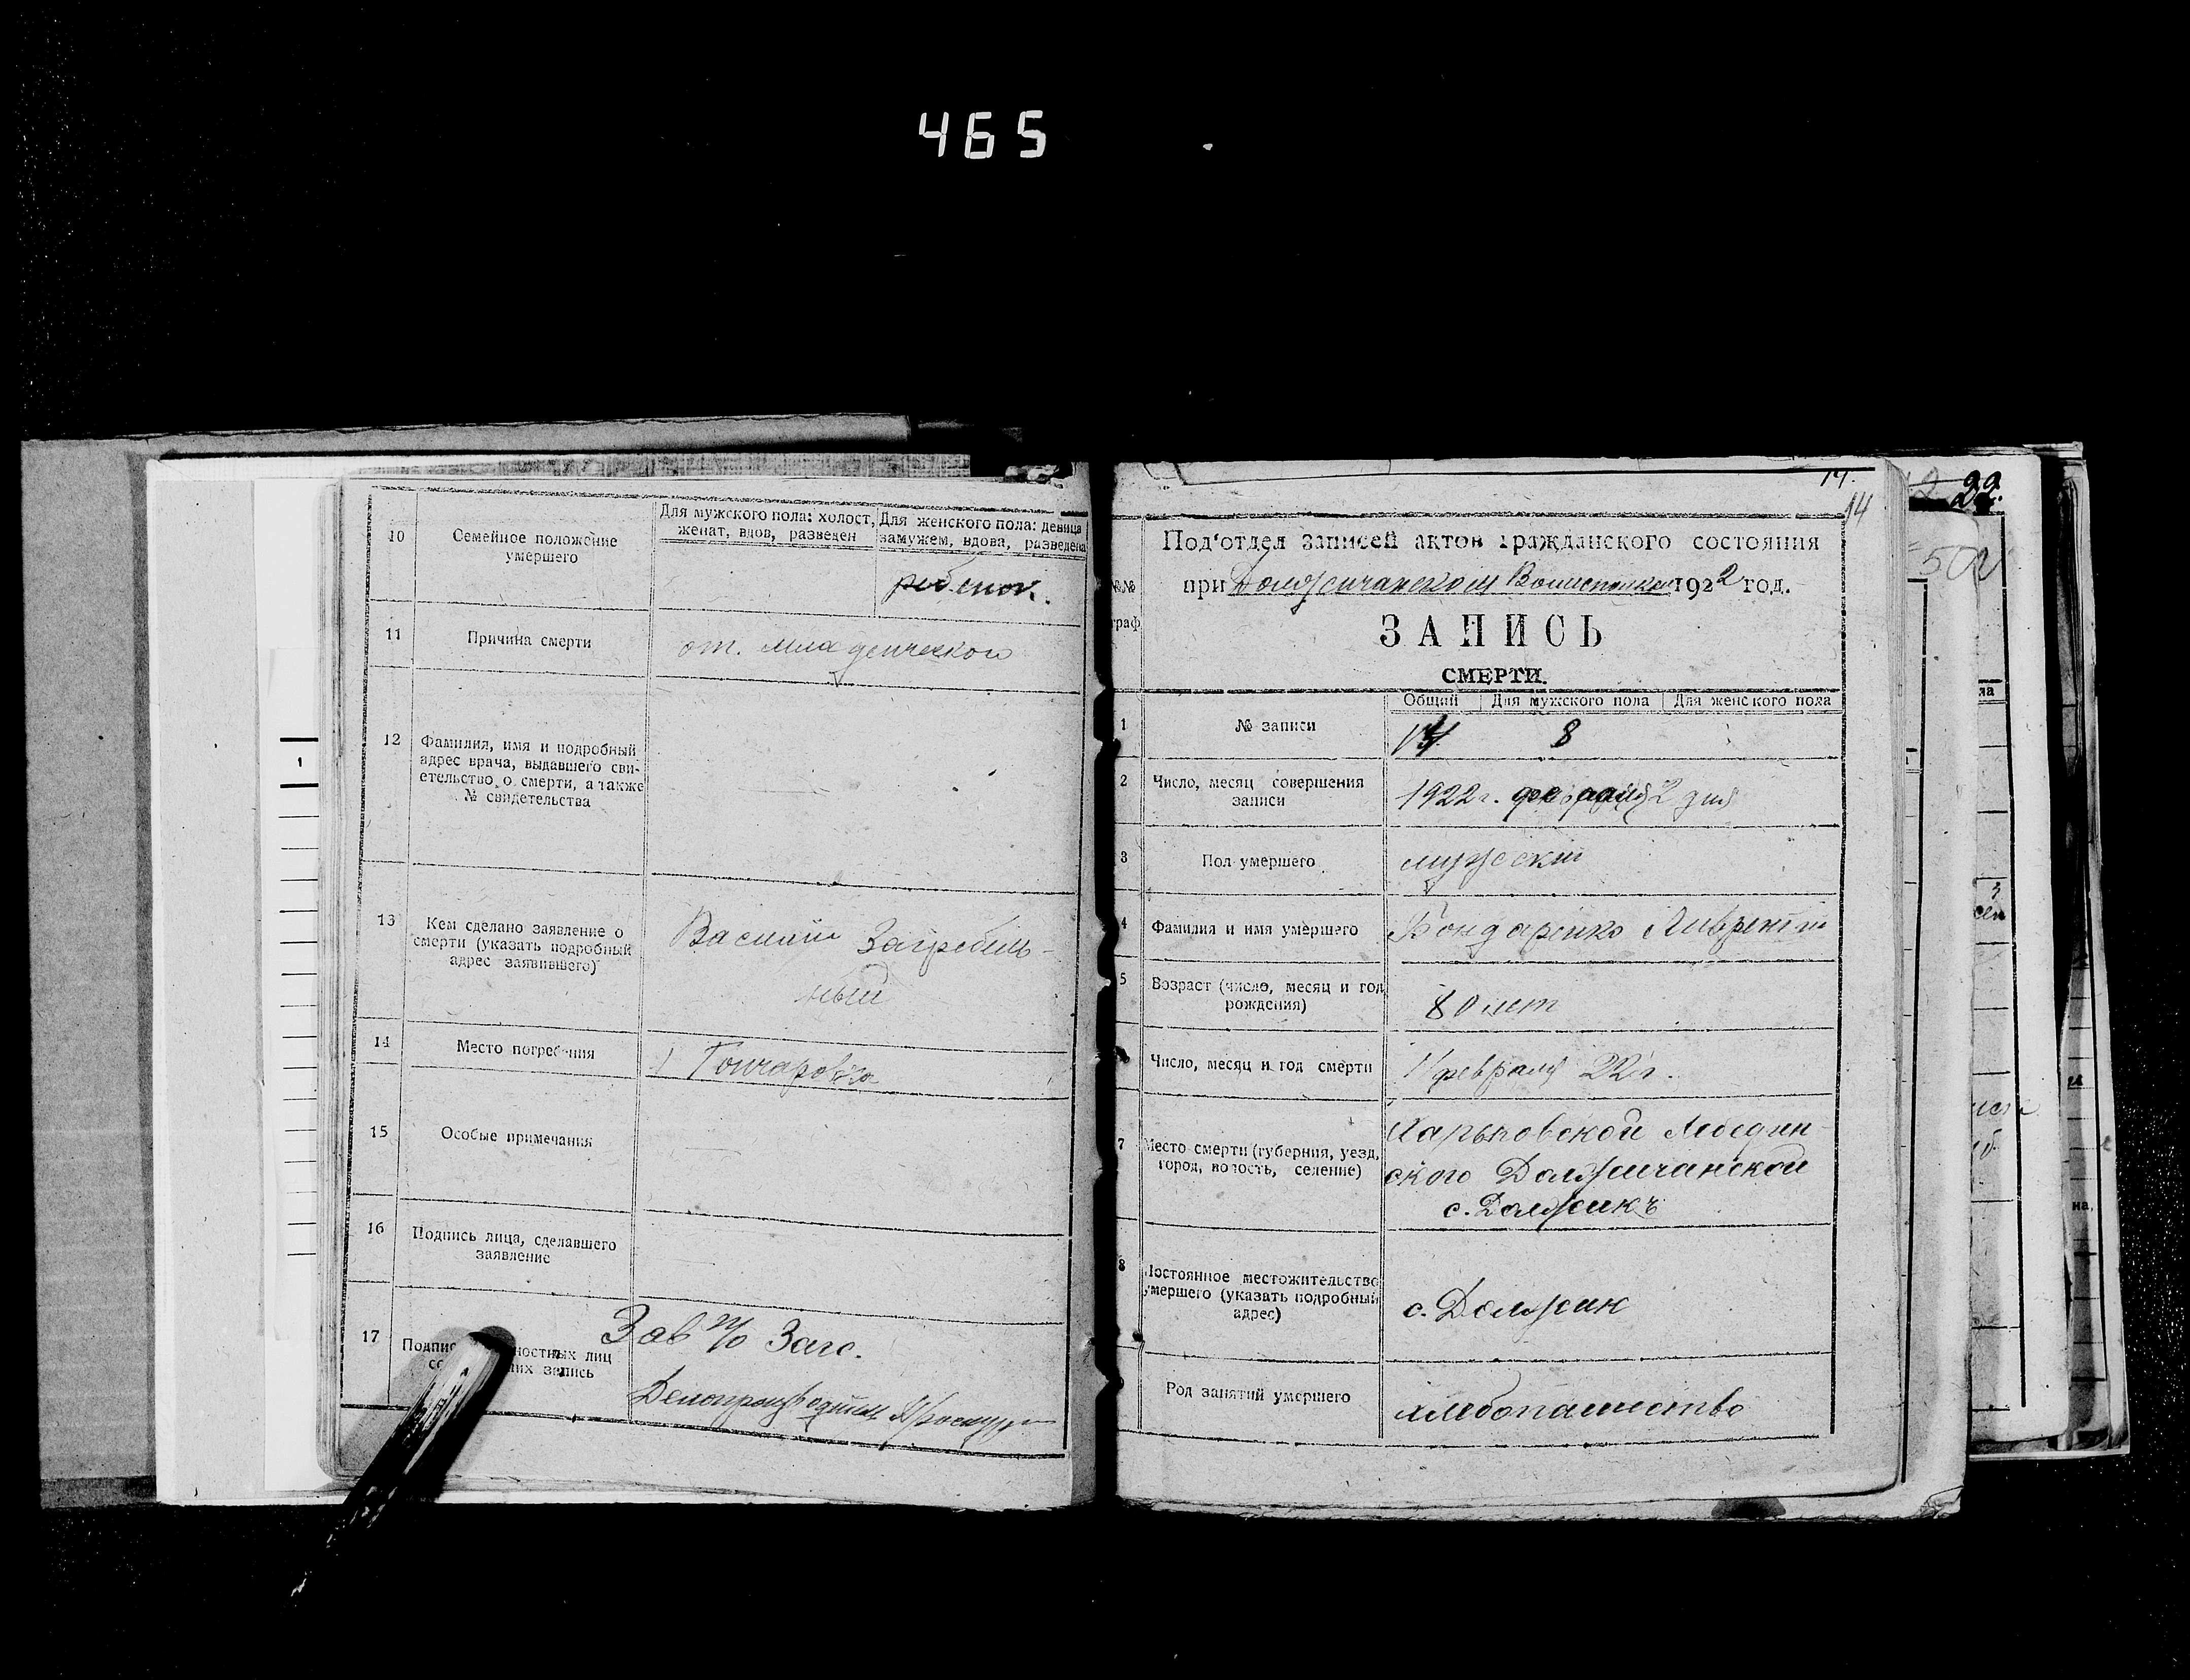 465
10
Семейное положение
умершего
Для мужского пола: холост,
женат, вдов, разведен
Для женского пола: девица
замужем, вдова, разведена
ребенок.
11
Причина смерти
от. младенческой
12
Фамилия, имя и подробный
адрес врача, выдавшего сви-
етельство о смерти, а также
№ свидетельства
13
Кем сделано заявление о
смерти (указать подробный
адрес заявившего)
Василий Загребель-
ный
14
Место погребения
Гончаровка
15
Особые примечания
16
Подпись лица, сделавшего
заявление
17
Зав п/о Загс.
ностных лиц
их запись
Делопроизводитель
1
14.
14
22.
502
Под'отдел записей актов гражданского состояния
№№
при Должичанском Волисполкоме 1922 год.
граф
ЗАПИСЬ
СМЕРТИ.
Общий Для мужского пола Для женского пола
1
№ записи
14 8
2
Число, месяц совершения
записи
1922 г. февраля 2 дня
3
Пол умершего
мужской
4
Фамилия и имя умершего
Бондаренко Лаврентий
5
Возраст (число, месяц и год
рождения)
80 лет
Число, месяц и год смерти
1 февраля 22 г.
7
Место смерти (губерния, уезд,
город, волость, селение)
Харьковской Лебедин-
ского Должичанской
с. Должикъ
8
Постоянное местожительство
умершего (указать подробный
адрес)
с. Должик
Род занятий умершего
хлебопашество